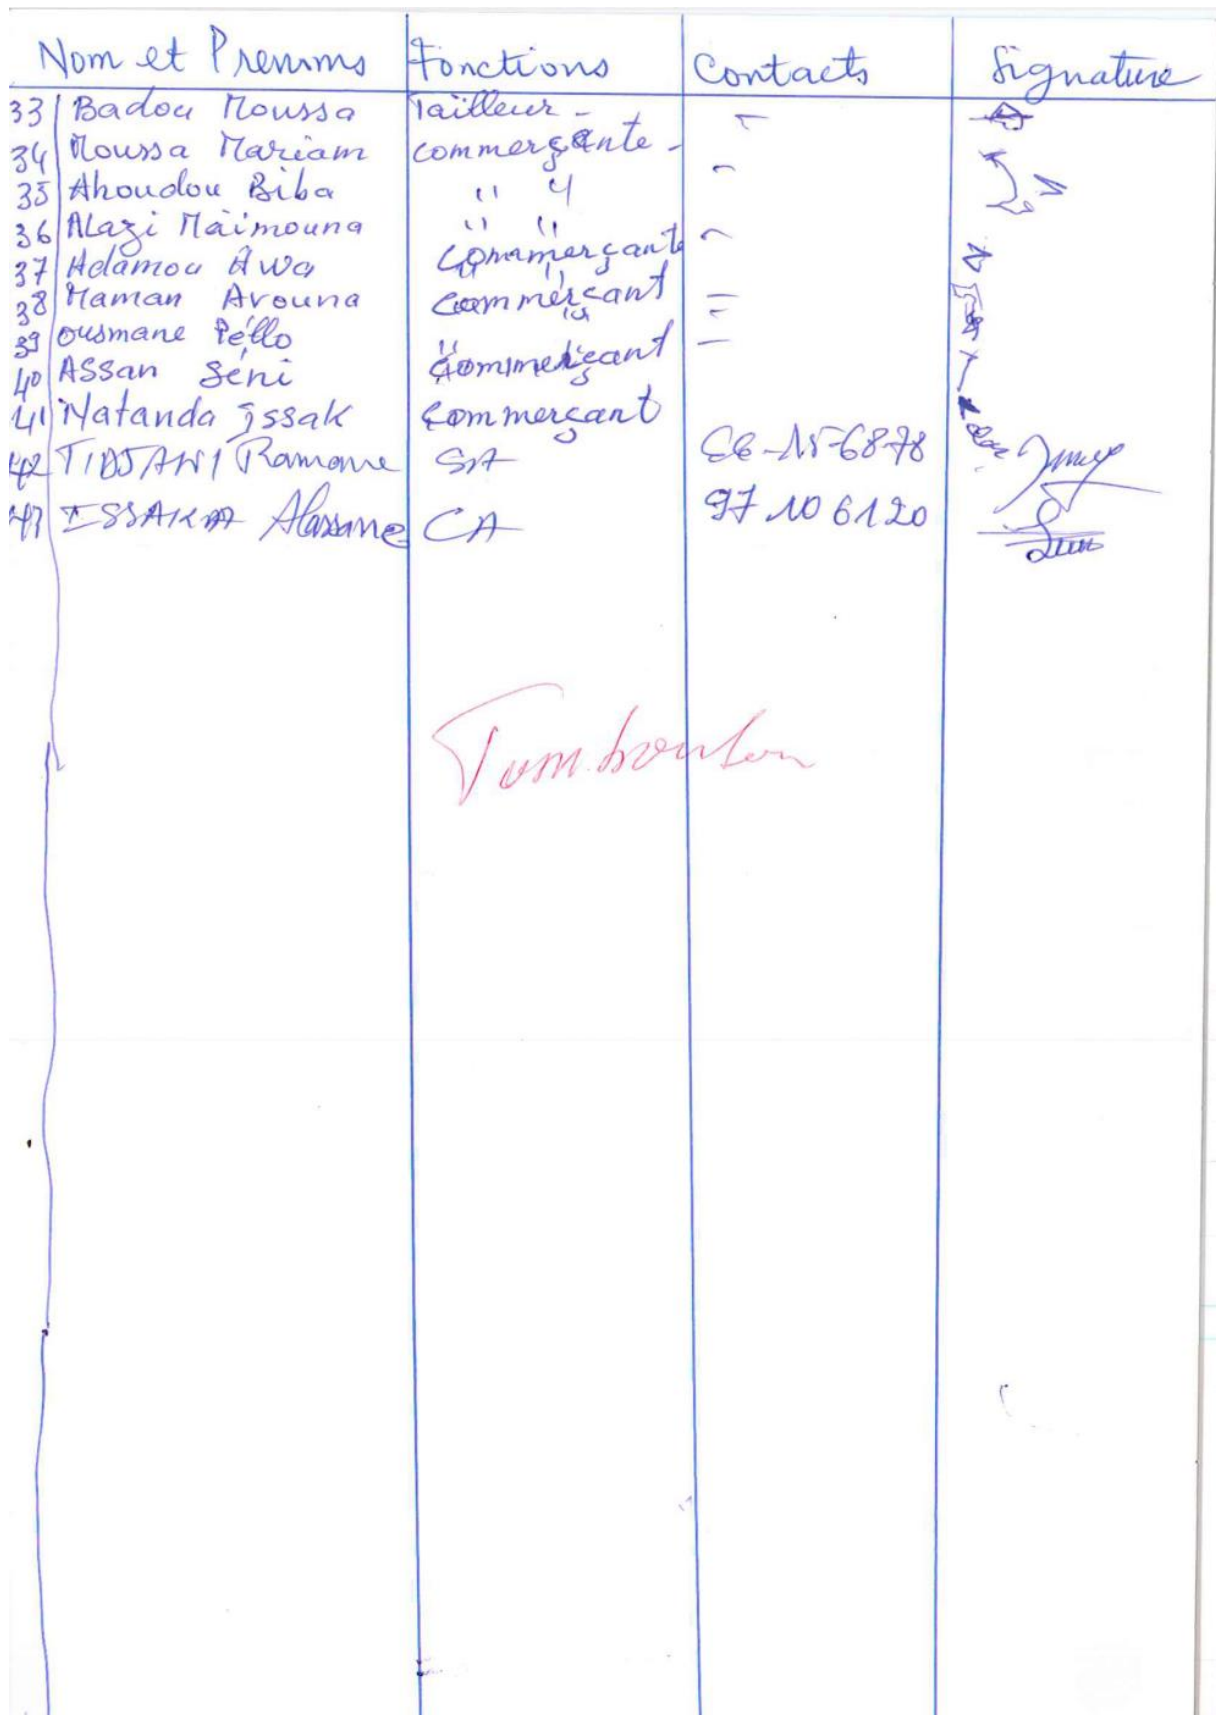 Nom et Prenoms Fonctions Contacts Signature
33 Badou Moussa Tailleur -
34 Moussa Mariam commerçante -
35 Ahoudou Biba " "
36 Alazi Maïmouna " "
37 Adamou Awa Commerçante
38 Maman Arouna Commerçant
39 Ousmane Péllo " "
40 ASSan Séni Commerçant
41 Natanda Issak Commerçant
42 TIDJANI Ramane SA -15-68-78
43 ISSAKA Alassane CA 97 10 61 20
Tombouton